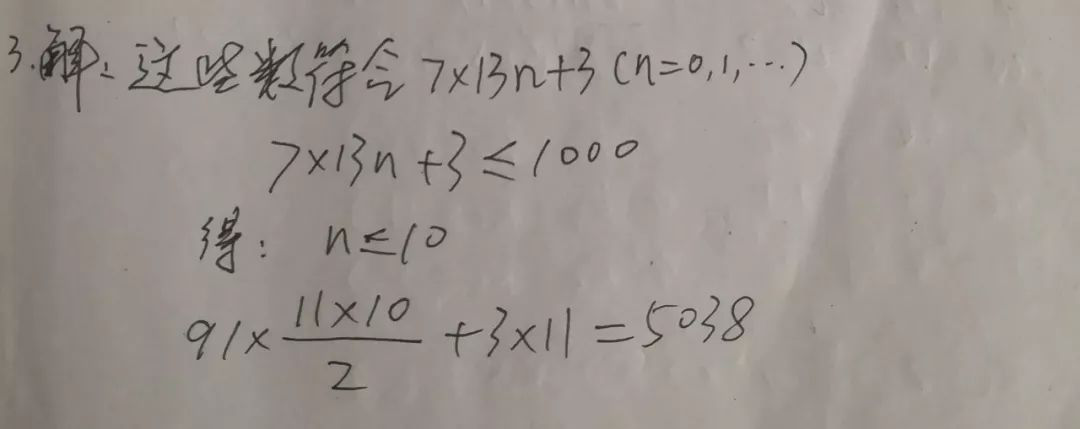 3.解:这些数符合 7×13n+3 (n=0,1,…)
7×13n+3≤1000
得: n≤10
91×\frac{11×10}{2}+3×11=5038